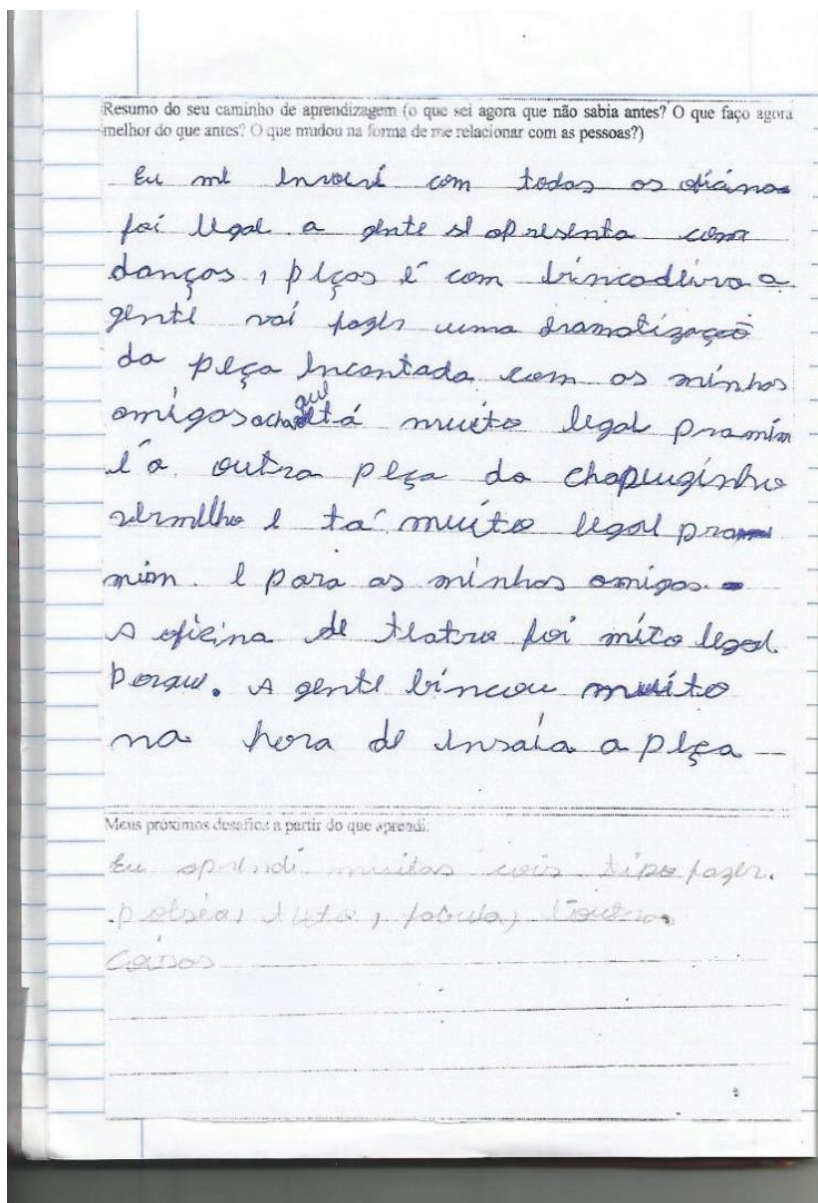 Resumo do seu caminho de aprendizagem (o que sei agora que não sabia antes? O que faço agora
melhor do que antes? O que mudou na forma de me relacionar com as pessoas?)
Eu me com todas os
foi legal a gente se apresenta com
danças, peças é com brincadeira a
gente vai fazer uma dramatização
da peça Encantada com os minhos
amigos acha que tá muito legal pra mim
e a outra peça do chapeuzinho
vermelho e tá muito legal pra
mim. e para as minhos amigos
A oficina de teatro foi mito legal.
Porque. A gente bincou muito
na hora de insaia a peça
Meus próximos desafios a partir do que aprendi:
Eu aprendi muitas cois tipo fazer.
fabula,
coisas